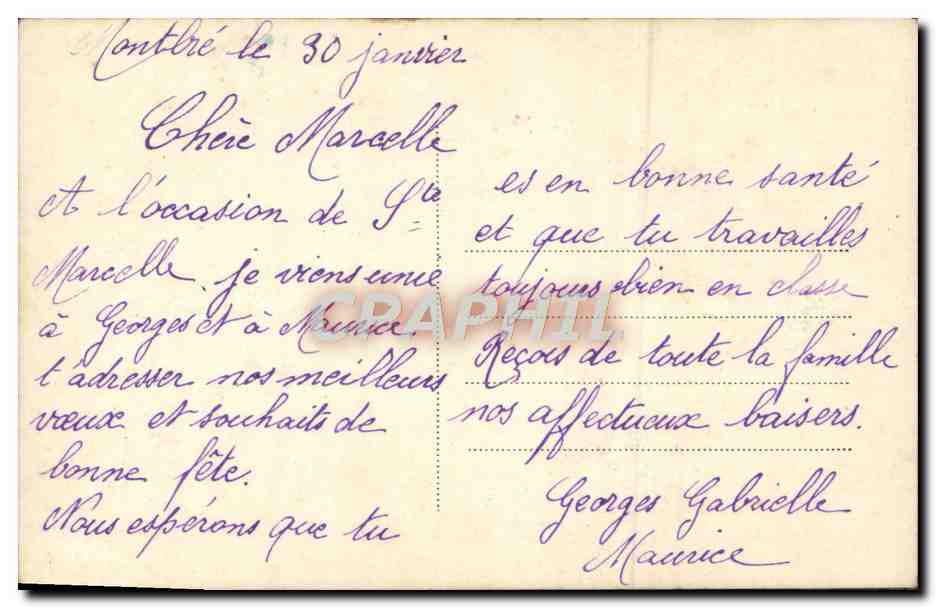 Montbré le 30 janvier
Chère Marcelle
A l'occasion de Ste
Marcelle, je viens unie
à Georges et à Maurice
t'adresser nos meilleurs
vœux et souhaits de
bonne fête.
Nous espérons que tu
es en bonne santé
et que tu travailles
toujours bien en classe
Reçois de toute la famille
nos affectueux baisers.
Georges Gabrielle
Maurice
CPAPHIL